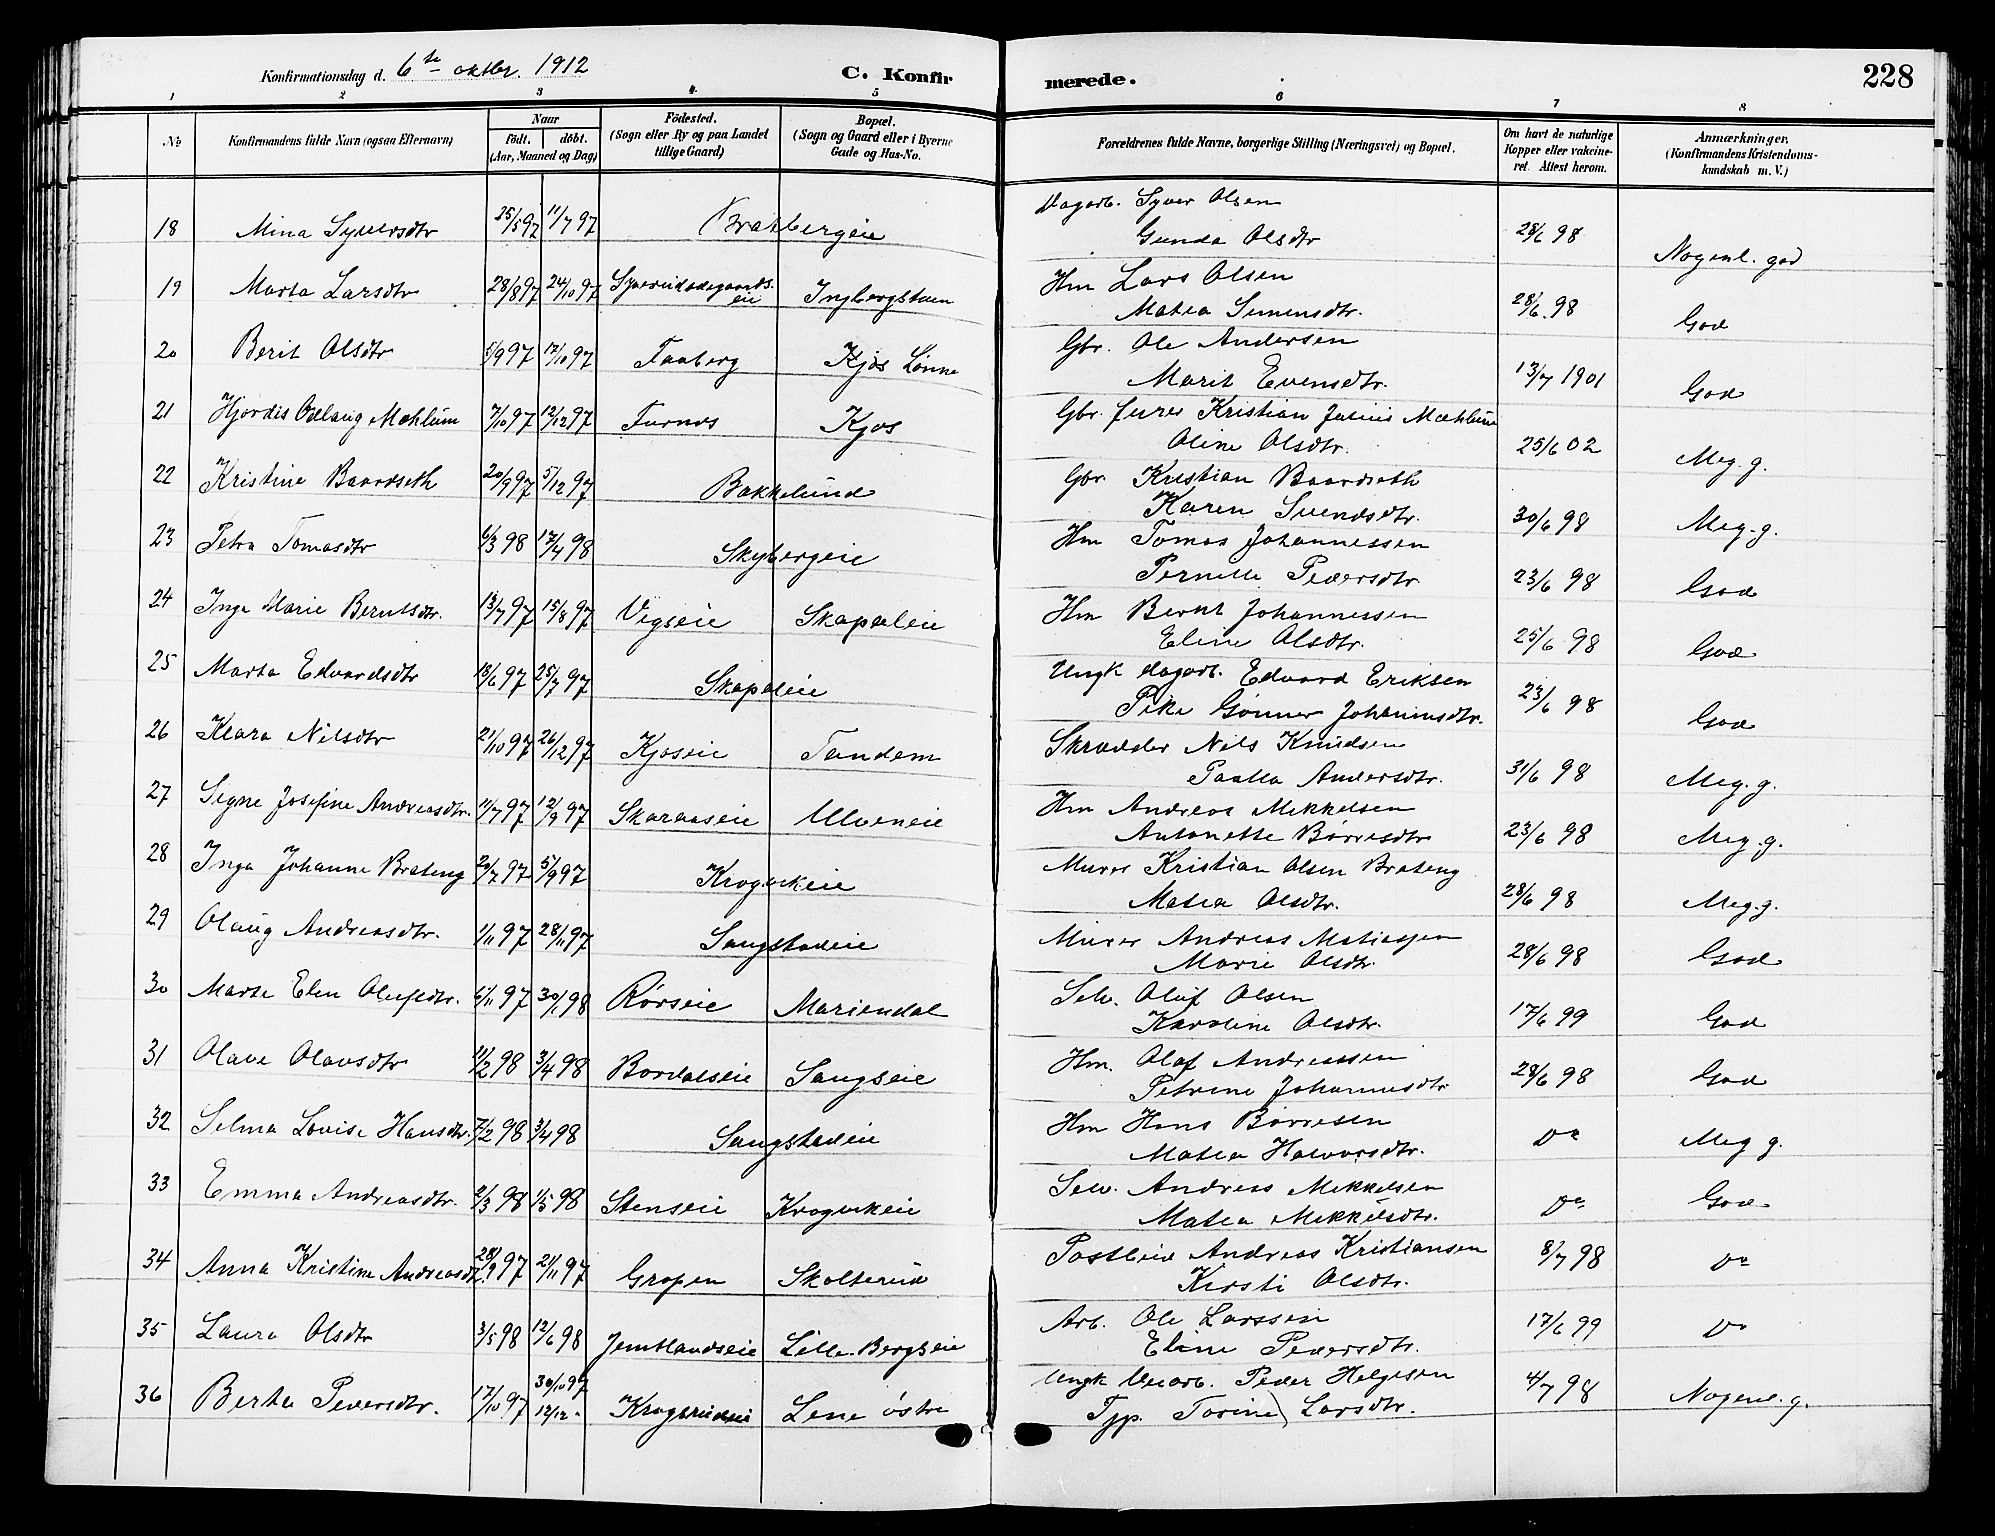 Konfirmationsdag d. 6te oktbr. 1912 C. Konfir merede. 228
1 2 3 4 5 6 7 8
No Konfirmandens fulde Navn (ogsaa Efternavn) Naar født. døbt. (Aar, Maaned og Dag) Fødested. (Sogn eller By og paa Landet tillige Gaard) Bopæl. (Sogn og Gaard eller i Byerne Gade og Hus-No. Forældrenes fulde Navne, borgerlige Stilling (Næringsvei) og Bopæl. Om havt de naturlige Kopper eller vakcineret. Attest herom. Anmærkninger. (Konfirmandens Kristendomskundskab m. V.)
18 Mina Syversdtr 25/5 97 11/7 97 Bratbergeie Dagarb. Syver Olsen
Gunda Olsdtr 28/6 98 Nogenl. god
19 Marta Larsdtr 28/8 97 24/10 97 Ingbergstuen Hm Lars Olsen
Matea Simensdtr. 28/6 98 God
20 Berit Olsdtr 5/9 97 17/10 97 Faaberg Kjos Lønne Gbr. Ole Andersen
Marit Evensdtr. 13/7 1901 God
21 Hjordis Odlaug Mæhlum 7/10 97 12/12 97 Furnes Kjos Gbr. furer Kristian Julius Mæhlum
Oline Olsdtr. 25/6 02 Meg. g.
22 Kristine Baardseth 20/9 97 5/12 97 Bakkelund Gbr. Kristian Baardseth
Karen Svendsdtr. 30/6 98 Meg. g.
23 Petra Tomasdtr 6/3 98 17/4 98 Skybergeie Hm Tomas Johannessen
Pernille Pedersdtr 23/6 98 God
24 Inga Marie Berntsdtr. 13/7 97 15/8 97 Vigseie Skapaleie Hm Bernt Johannessen
Eline Olsdtr. 25/6 98 God
25 Marta Edvardsdtr 13/6 97 25/7 97 Skapaleie Ungk dagarb. Edvard Eriksen
Pike Gønner Johannesdtr. 23/6 98 God
26 Klara Nilsdtr 21/10 97 26/12 97 Kjoseie Tandem Skrædder Nils Knudsen
Andersdtr. 31/6 98 Meg. g.
27 Signe Josefine Andreasdtr. 11/7 97 12/9 97 Skaraaseie Ulveneie Hm Andreas Mikkelsen
Antonette Børresdtr 23/6 98 Meg. g.
28 Inga Johanne Brateng 20/7 97 5/9 97 Krogvikeie Murer Kristian Olsen Brateng
Matea Olsdtr. 28/6 98 Meg. g.
29 Olaug Andreasdtr. 1/11 97 28/11 97 Sangstadeie Murer Andreas Matiassen
Marie Olsdtr. 28/6 98 God
30 Marte Elen Olufsdtr. 6/11 97 30/1 98 Rørseie Mariendal Selv. Oluf Olsen
Karoline Olsdtr. 17/6 99 God
31 Olave Olavsdtr 11/2 98 3/4 98 Bordalseie Sangseie Hm. Olaf Andreassen
Petrine Johannesdtr 28/6 98 God
32 Selma Lovise Hansdtr. 7/2 98 3/4 98 Sangstadeie Hm Hans Børresen
Matea Halvorsdtr. Do Meg g.
33 Emma Andreasdtr. 2/3 98 1/5 98 Stenseie Krogvikeie Selv. Andreas Mikkelsen
Matea Mikkelsdtr. Do God
34 Anna Kristine Andreasdtr 28/9 97 21/11 97 Gropen Skolterud Andreas Kristiansen
Kirsti Olsdtr. 8/7 98 Do
35 Laura Olsdtr 3/5 98 12/6 98 Jemtlandseie Lille-Bergseie Arb. Ole Larssen
Eline Pedersdtr. 17/6 99 Do
36 Berta Pedersdtr. 17/10 97 30/10 97 12/12 - Krogsrudeie Lene østre Ungk Veiarb. Peder Helgesen
Tjp. Torine Larsdtr. 4/7 98 Nogenl. g.